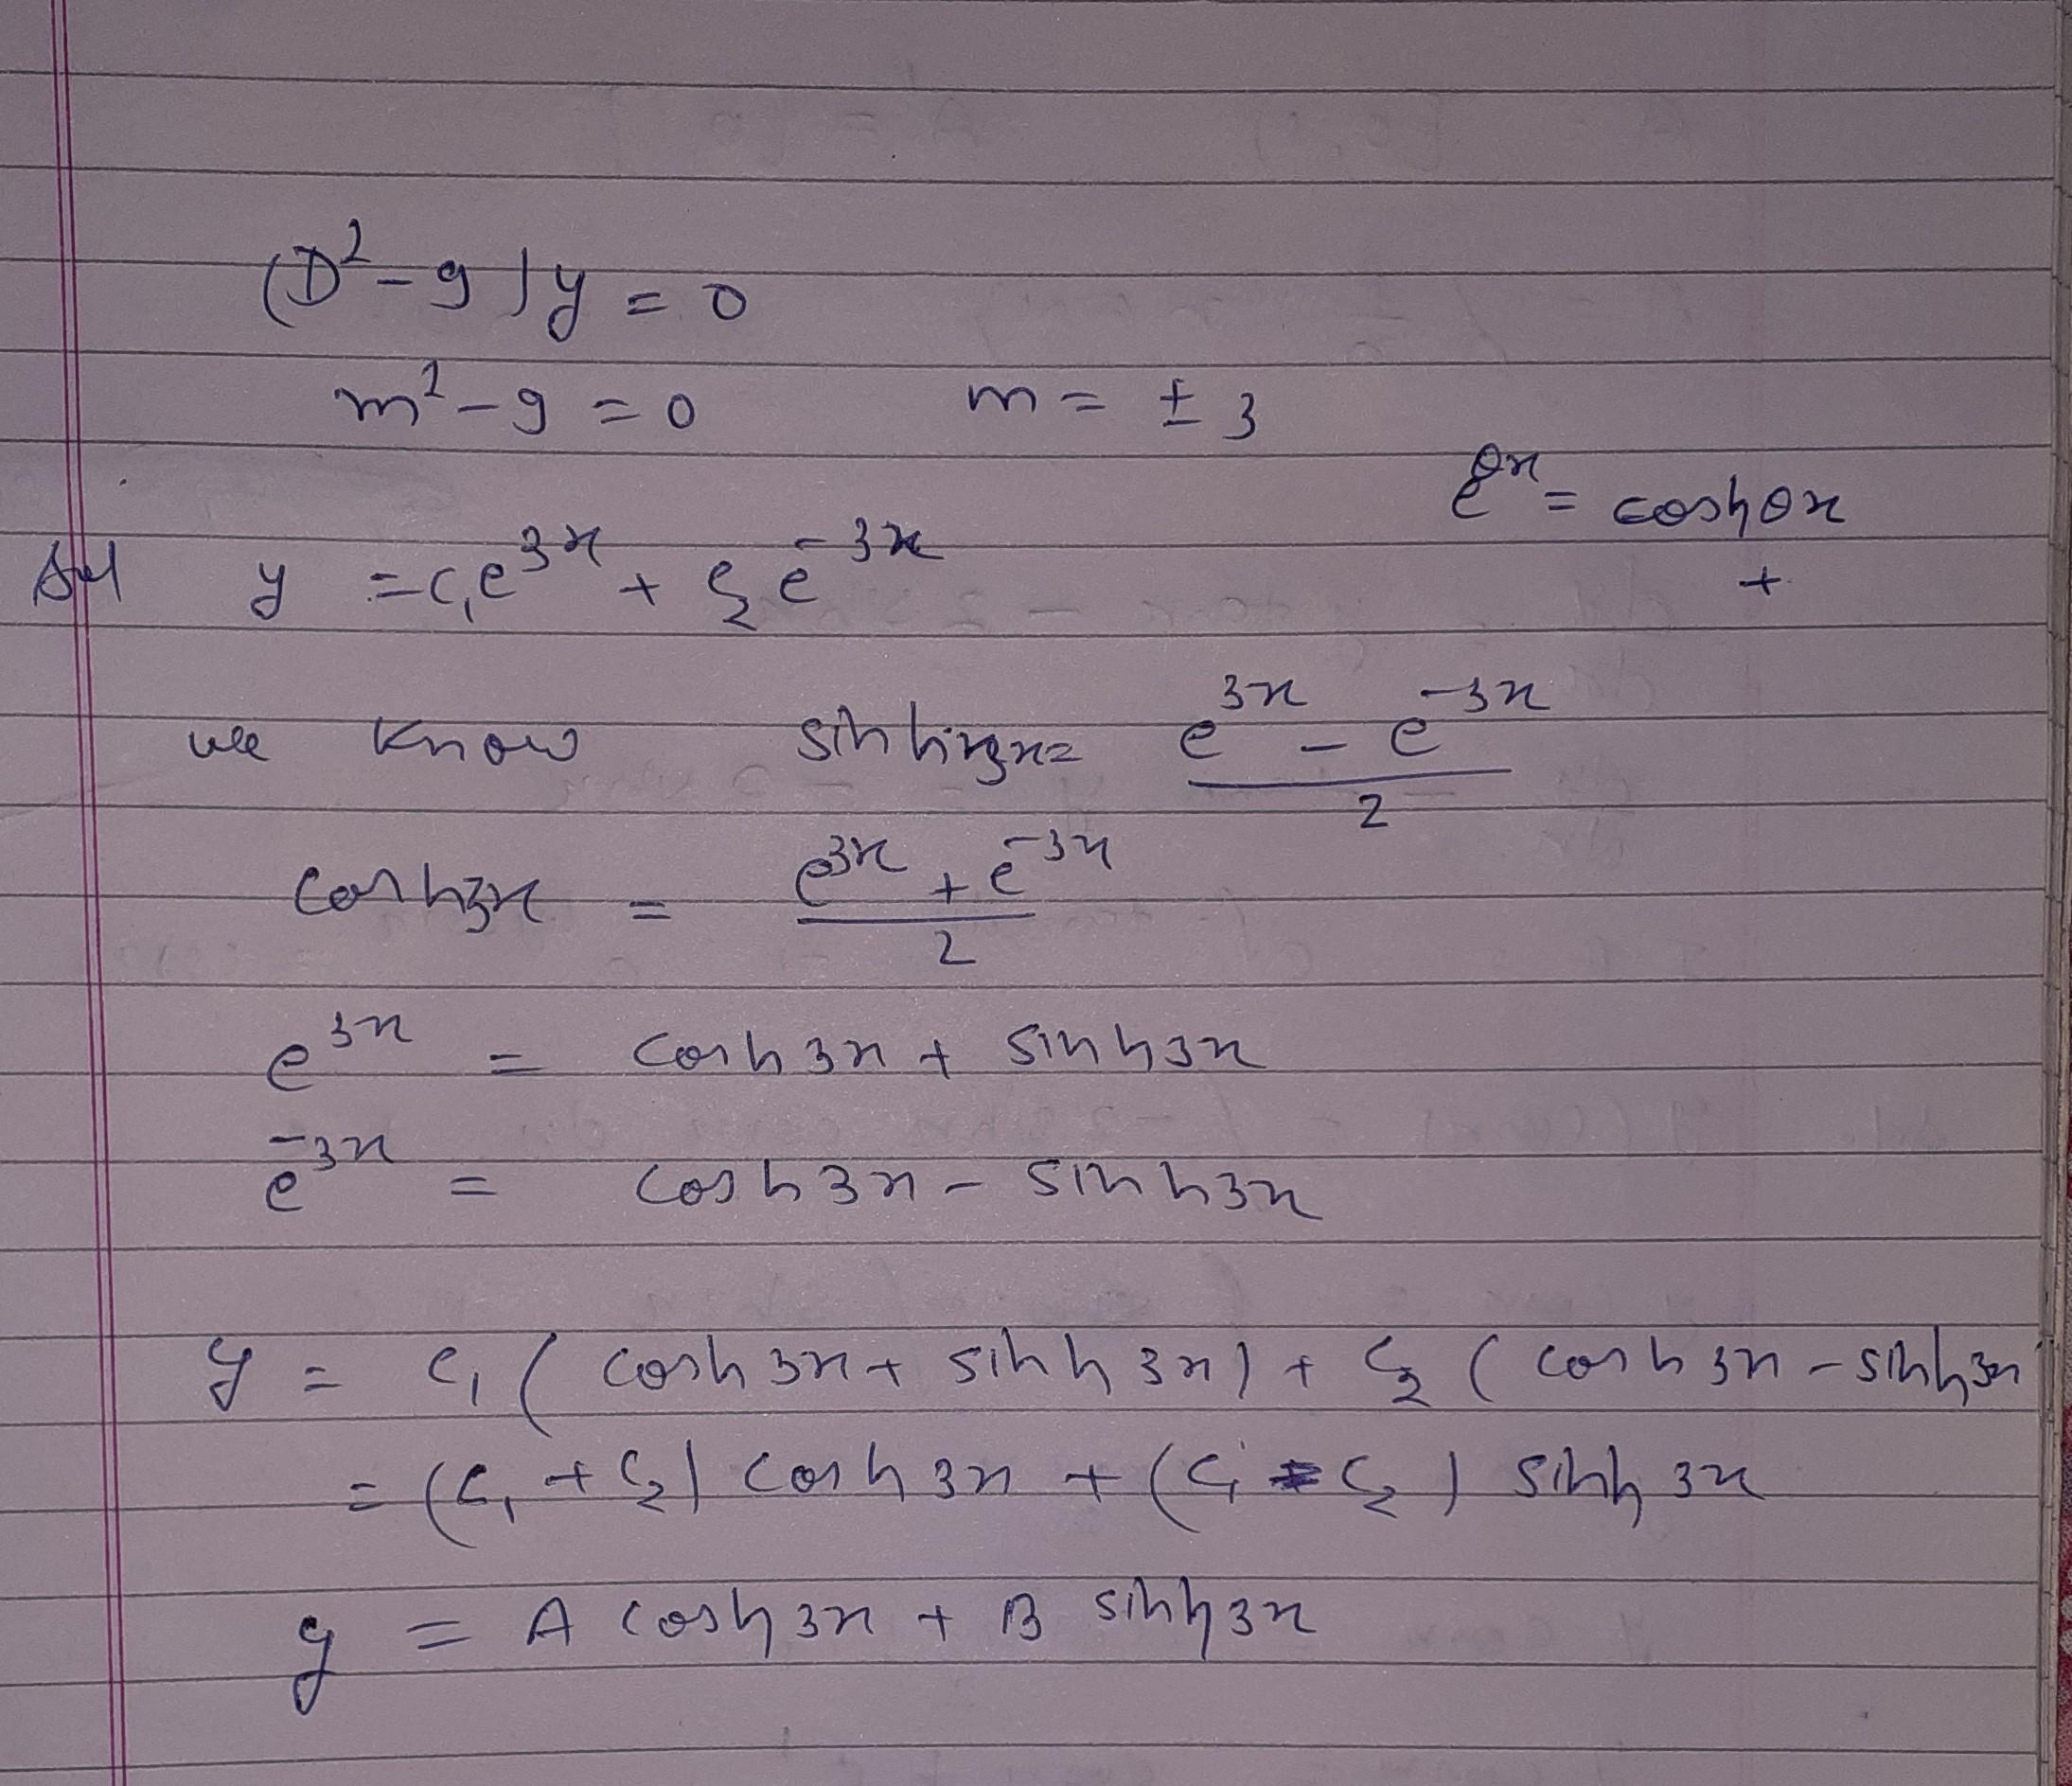 (D² - 9)y = 0
m² - 9 = 0   m = ± 3
e^θx = coshθx
+
Sol y = c₁e^3x + c₂e^-3x
we know sinh3x = (e^3x - e^-3x)/2
cosh3x = (e^3x + e^-3x)/2
e^3x = cosh3x + sinh3x
e^-3x = cosh3x - sinh3x
y = c₁(cosh3x + sinh3x) + c₂(cosh3x - sinh3x
= (c₁ + c₂) cosh3x + (c₁ - c₂) sinh3x
y = A cosh3x + B sinh3x